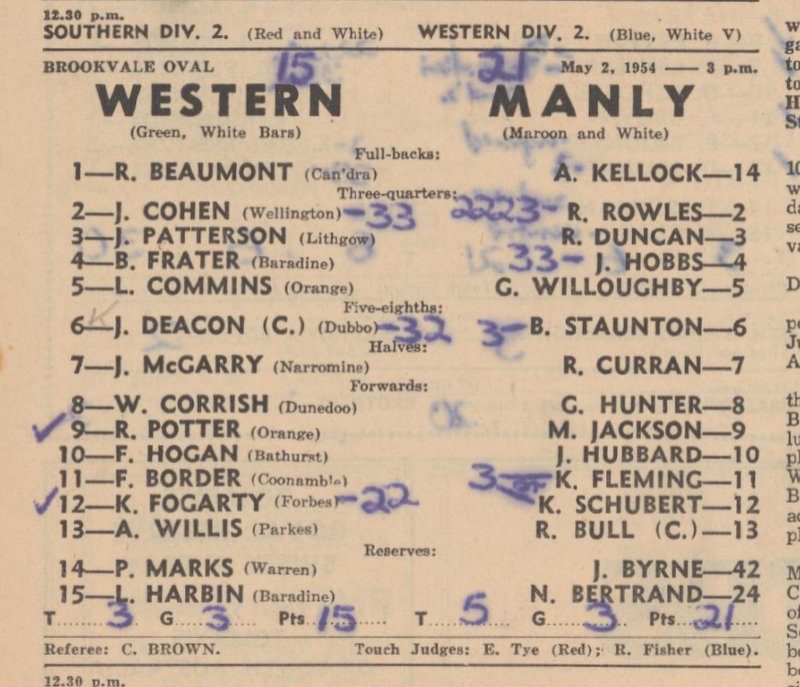 12.30 p.m.
SOUTHERN DIV. 2. (Red and White) WESTERN DIV. 2. (Blue, White V)
BROOKVALE OVAL 15 21 May 2, 1954 — 3 p.m.
WESTERN MANLY
(Green, White Bars) (Maroon and White)
Full-backs:
1—R. BEAUMONT (Can'dra) A. KELLOCK—14
Three-quarters:
2—J. COHEN (Wellington) -33 2223- R. ROWLES—2
3—J. PATTERSON (Lithgow) R. DUNCAN—3
4—B. FRATER (Baradine) 33- J. HOBBS—4
5—L. COMMINS (Orange) G. WILLOUGHBY—5
Five-eighths:
6—J. DEACON (C.) (Dubbo) -32 3- B. STAUNTON—6
Halves:
7—J. McGARRY (Narromine) R. CURRAN—7
Forwards:
8—W. CORRISH (Dunedoo) G. HUNTER—8
9—R. POTTER (Orange) M. JACKSON—9
10—F. HOGAN (Bathurst) J. HUBBARD—10
11—F. BORDER (Coonamble) 3- K. FLEMING—11
12—K. FOGARTY (Forbes) -22 K. SCHUBERT—12
13—A. WILLIS (Parkes) R. BULL (C.)—13
Reserves:
14—P. MARKS (Warren) J. BYRNE—42
15—L. HARBIN (Baradine) N. BERTRAND—24
T 3 G 3 Pts 15 T 5 G 3 Pts 21
Referee: C. BROWN. Touch Judges: E. Tye (Red); R. Fisher (Blue).
12.30 p.m.